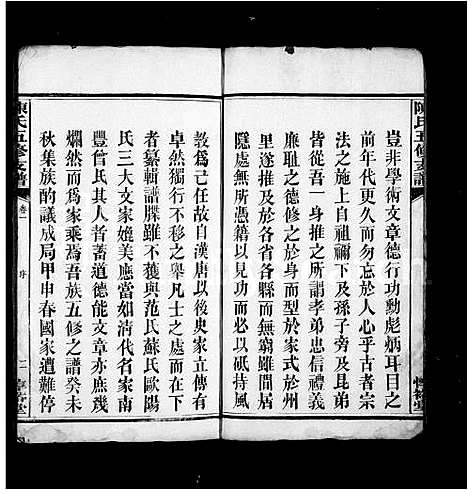 陳氏五修支譜
豈非學術文章德行功勳彪炳耳目之
前年代更久而勿忘於人心乎古者宗
法之施上自祖禰下及孫子旁及昆弟
皆從吾一身推之所謂孝弟忠信禮義
廉耻之德修於身而型於家式於州
里遂推及於全省各國其或僻處
隱處無所憑藉以見亦足以維持風
教爲己任故自漢唐以後史家立傳
卓然有不移之舉凡士之處而在下
者纂輯譜牒雖不獲與范氏蘇氏歐陽
氏三大文家媲美應當如清代名家朱
豐曾氏其人者蓄道德能文章亦庶幾
爛然而爲家乘焉吾族五修之譜癸未
秋集族酌議成局甲申春國家遭難停
陳氏五修支譜
卷一
序
二